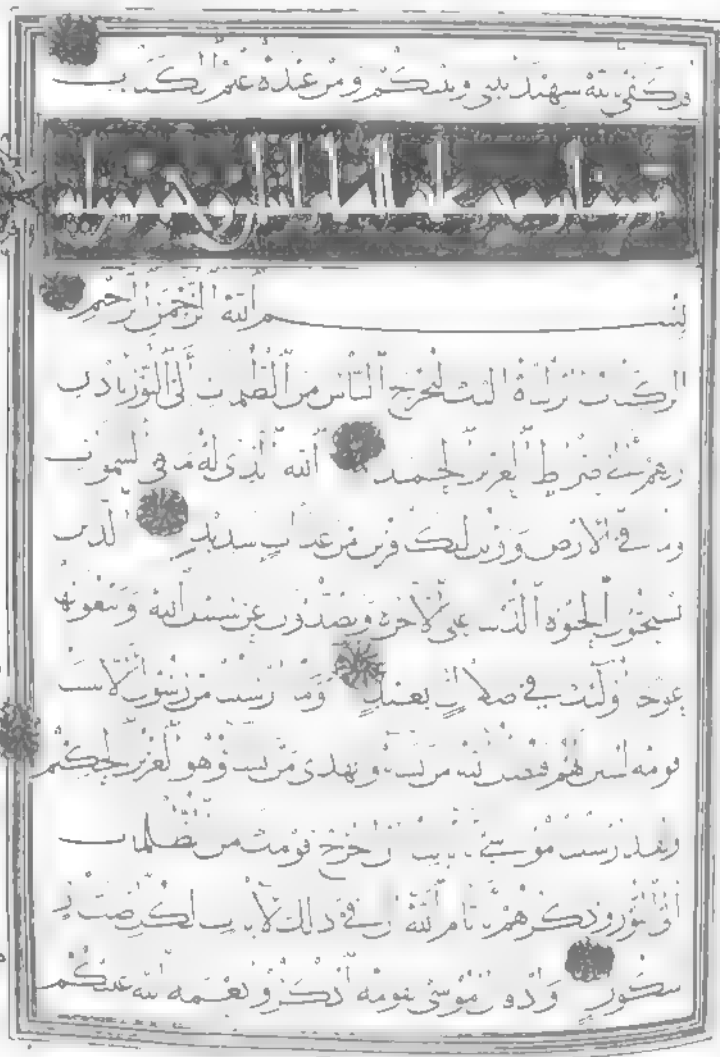 قل كفى بالله شهيدا بيني وبينكم ومن عنده علم الكتب
بسم الله الرحمن الرحيم
الر كتب انزلنه اليك لتخرج الناس من الظلمت الى النور باذن
ربهم الى صرط العزيز الحميد الله الذي له ما في السموت
وما في الارض وويل للكفرين من عذاب شديد الذين
يستحبون الحيوة الدنيا على الاخرة ويصدون عن سبيل الله ويبغونها
عوجا اولئك في ضلال بعيد وما ارسلنا من رسول الا بلسان
قومه ليبين لهم فيضل الله من يشاء ويهدي من يشاء وهو العزيز الحكيم
ولقد ارسلنا موسى بايتنا ان اخرج قومك من الظلمات
الى النور وذكرهم بايم الله ان في ذلك لايت لكل صبار
شكور واذ قال موسى لقومه اذكروا نعمة الله عليكم